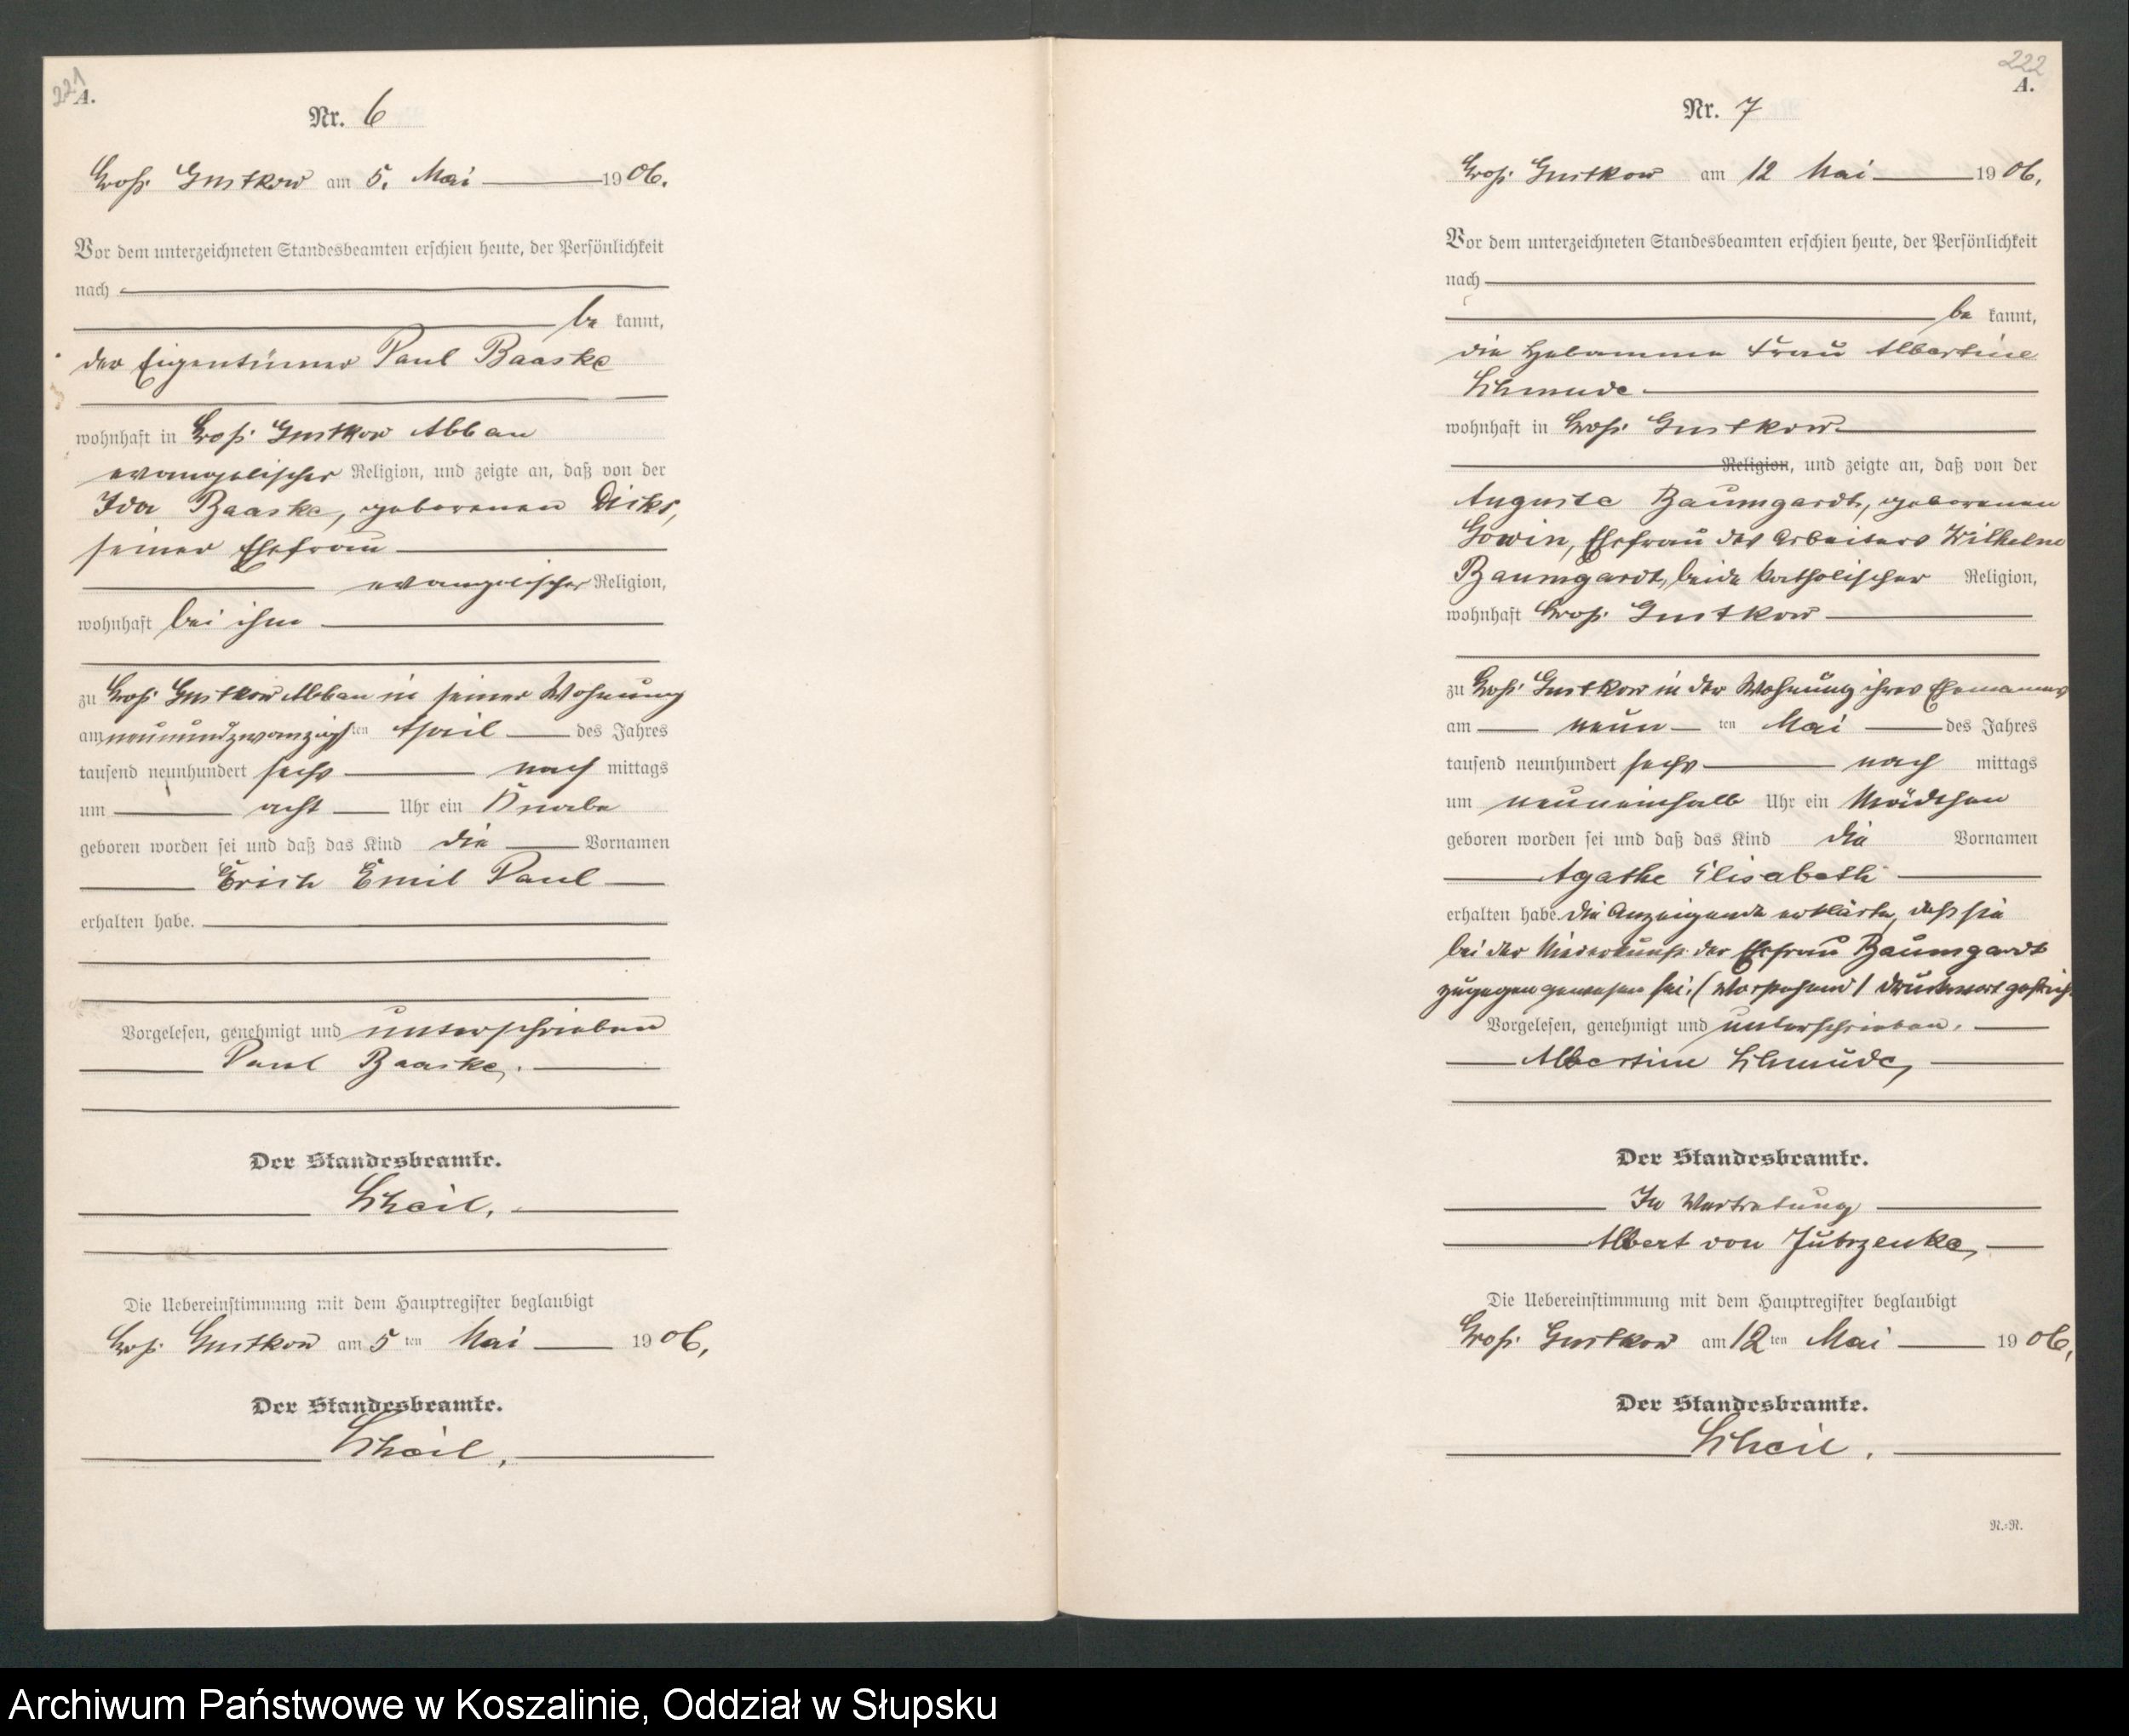 221
A.
Nr. 6
Groß Gustkow am 5. Mai 1906.
Vor dem unterzeichneten Standesbeamten erschien heute, der Persönlichkeit
nach
be kannt,
der Eigentümer Paul Baaske
wohnhaft in Groß Gustkow Abbau
evangelischer Religion, und zeigte an, daß von der
Ida Baaske, geborenen Dirks,
seiner Ehefrau
evangelischer Religion,
wohnhaft bei ihm
zu Groß Gustkow Abbau in seiner Wohnung
am neunundzwanzigsten April des Jahres
tausend neunhundert sechs nach mittags
um acht Uhr ein Knabe
geboren worden sei und daß das Kind die Vornamen
Erich Emil Paul
erhalten habe.
Vorgelesen, genehmigt und unterschrieben
Paul Baaske.
Der Standesbeamte.
Scheil.
Die Uebereinstimmung mit dem Hauptregister beglaubigt
Groß Gustkow am 5 ten Mai 1906,
Der Standesbeamte.
Scheil,
222
A.
Nr. 7
Groß Gustkow am 12 Mai 1906,
Vor dem unterzeichneten Standesbeamten erschien heute, der Persönlichkeit
nach
be kannt,
die Hebamme Frau Albertine
Schmude
wohnhaft in Groß Gustkow
Religion, und zeigte an, daß von der
Auguste Baumgardt, geborenen
Gowin, Ehefrau des Arbeiters Wilhelm
Baumgardt, beide katholischer Religion,
wohnhaft Groß Gustkow
zu Groß Gustkow in der Wohnung ihres Ehemannes
am neun ten Mai des Jahres
tausend neunhundert sechs nach mittags
um neuneinhalb Uhr ein Mädchen
geboren worden sei und daß das Kind die Vornamen
Agathe Elisabeth
erhalten habe. Die Anzeigende erklärte, daß sie
bei der Niederkunft der Ehefrau Baumgardt
zugegen gewesen sei. (Vorstehend 1 Druckwort gestrich.
Vorgelesen, genehmigt und unterschrieben.
Albertine Schmude,
Der Standesbeamte.
In Vertretung
Albert von Jutrzenka,
Die Uebereinstimmung mit dem Hauptregister beglaubigt
Groß Gustkow am 12 ten Mai 1906,
Der Standesbeamte.
Scheil.
N.-R.
Archiwum Państwowe w Koszalinie, Oddział w Słupsku